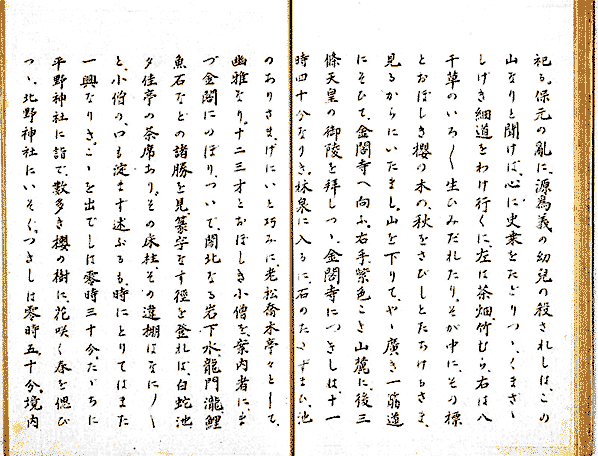 祀る。保元の亂に、源爲義の幼兒の殺されしは、この
山なりと聞けば、心に史乗をたどりつゝ、くまざゝ
しげき細道をわけ行くに、左は茶畑、竹むら、右は八
千草のいろ〱生ひみだれたり。そが中に、その標
とおぼしき櫻の木の、秋をさびしとたちけるさま、
見るからにいたまし。山を下りて、やゝ廣き一筋道
にそひて、金閣寺へ向ふ。右手、紫色こき山麓に、後三
條天皇の御陵を拜しつゝ、金閣寺につきしは、十一
時四十分なりき。林泉に入るに、石のたゝずまひ、池
のありさま、げにいと巧みに、老松喬木亭々として、
幽雅なり。十二三才とおぼしき小僧を、案内者に、ま
づ金閣にのぼり、ついで、閣北なる岩下水、龍門瀧、鯉
魚石などの諸勝を見、篆字をす徑を登れば、白蛇池
夕佳亭の茶席あり。その床柱、その違棚はなに〱
と、小僧の、口も淀まず述ぶるも、時にとりてはまた
一興なりき。こゝを出でしは零時三十分。たゞちに
平野神社に詣で、數多き櫻の樹に、花咲く春を偲び
つゝ、北野神社にいそぐ。つきしは零時五十分。境内